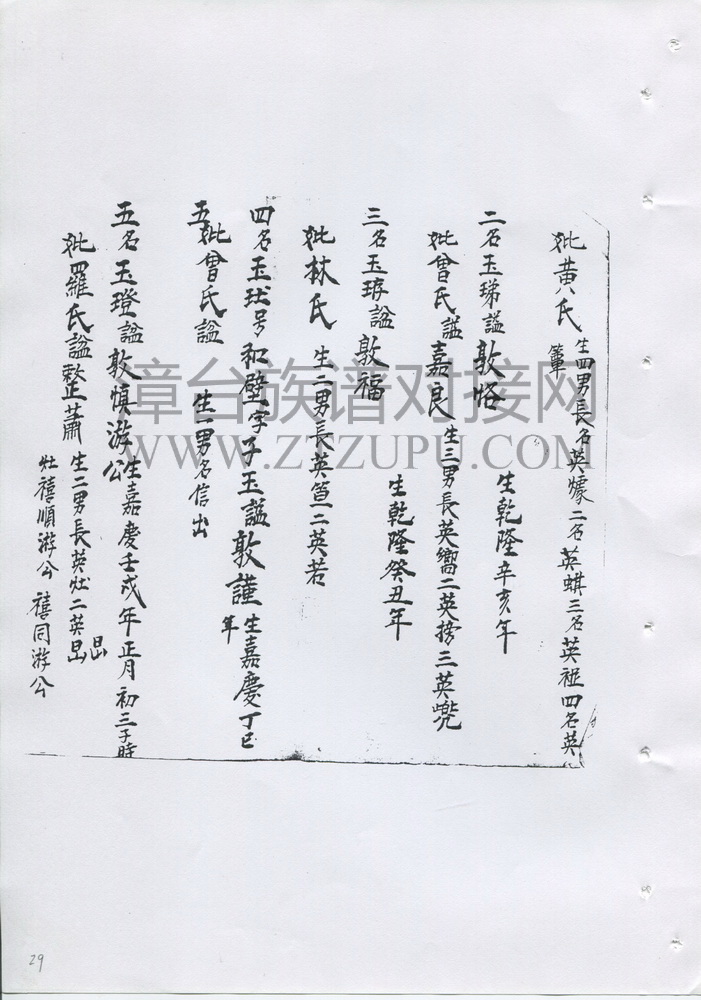 妣黃氏 生四男長名英爉二名英蜞三名英䘽四名英
篳
二名玉珶謚敦恪 生乾隆辛亥年
妣曾氏謚嘉良 生三男長英嚮二英捞三英
三名玉琼謚敦福 生乾隆癸丑年
妣林氏 生二男長英笪二英若
四名玉珑号和璧字子玉謚敦謹 生嘉慶丁巳
年
五
妣曾氏謚 生一男名信出
五名玉璒謚敦慎游公 生嘉慶壬戌年正月初三子時
妣羅氏謚整肅 生二男長英灶二英昷
灶禧順游公 禧同游公
漳台族谱对接网
WWW.ZTZUPU.COM
29